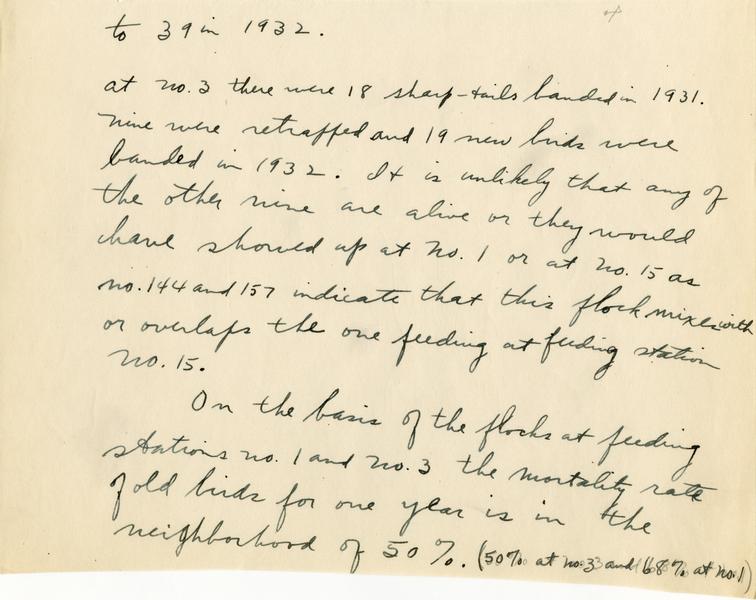 to 39 in 1932.
at no. 3 there were 18 sharp-tails banded in 1931.
Nine were retrapped and 19 new birds were
banded in 1932. It is unlikely that any of
the other nine are alive or they would
have showed up at No. 1 or at No. 15 as
no. 144 and 157 indicate that this flock mixes with
or overlaps the one feeding at feeding station
No. 15.
On the basis of the flocks at feeding
stations no. 1 and No. 3 the mortality rate
of old birds for one year is in the
neighborhood of 50%. (50% at no. 3 and 68% at no. 1)